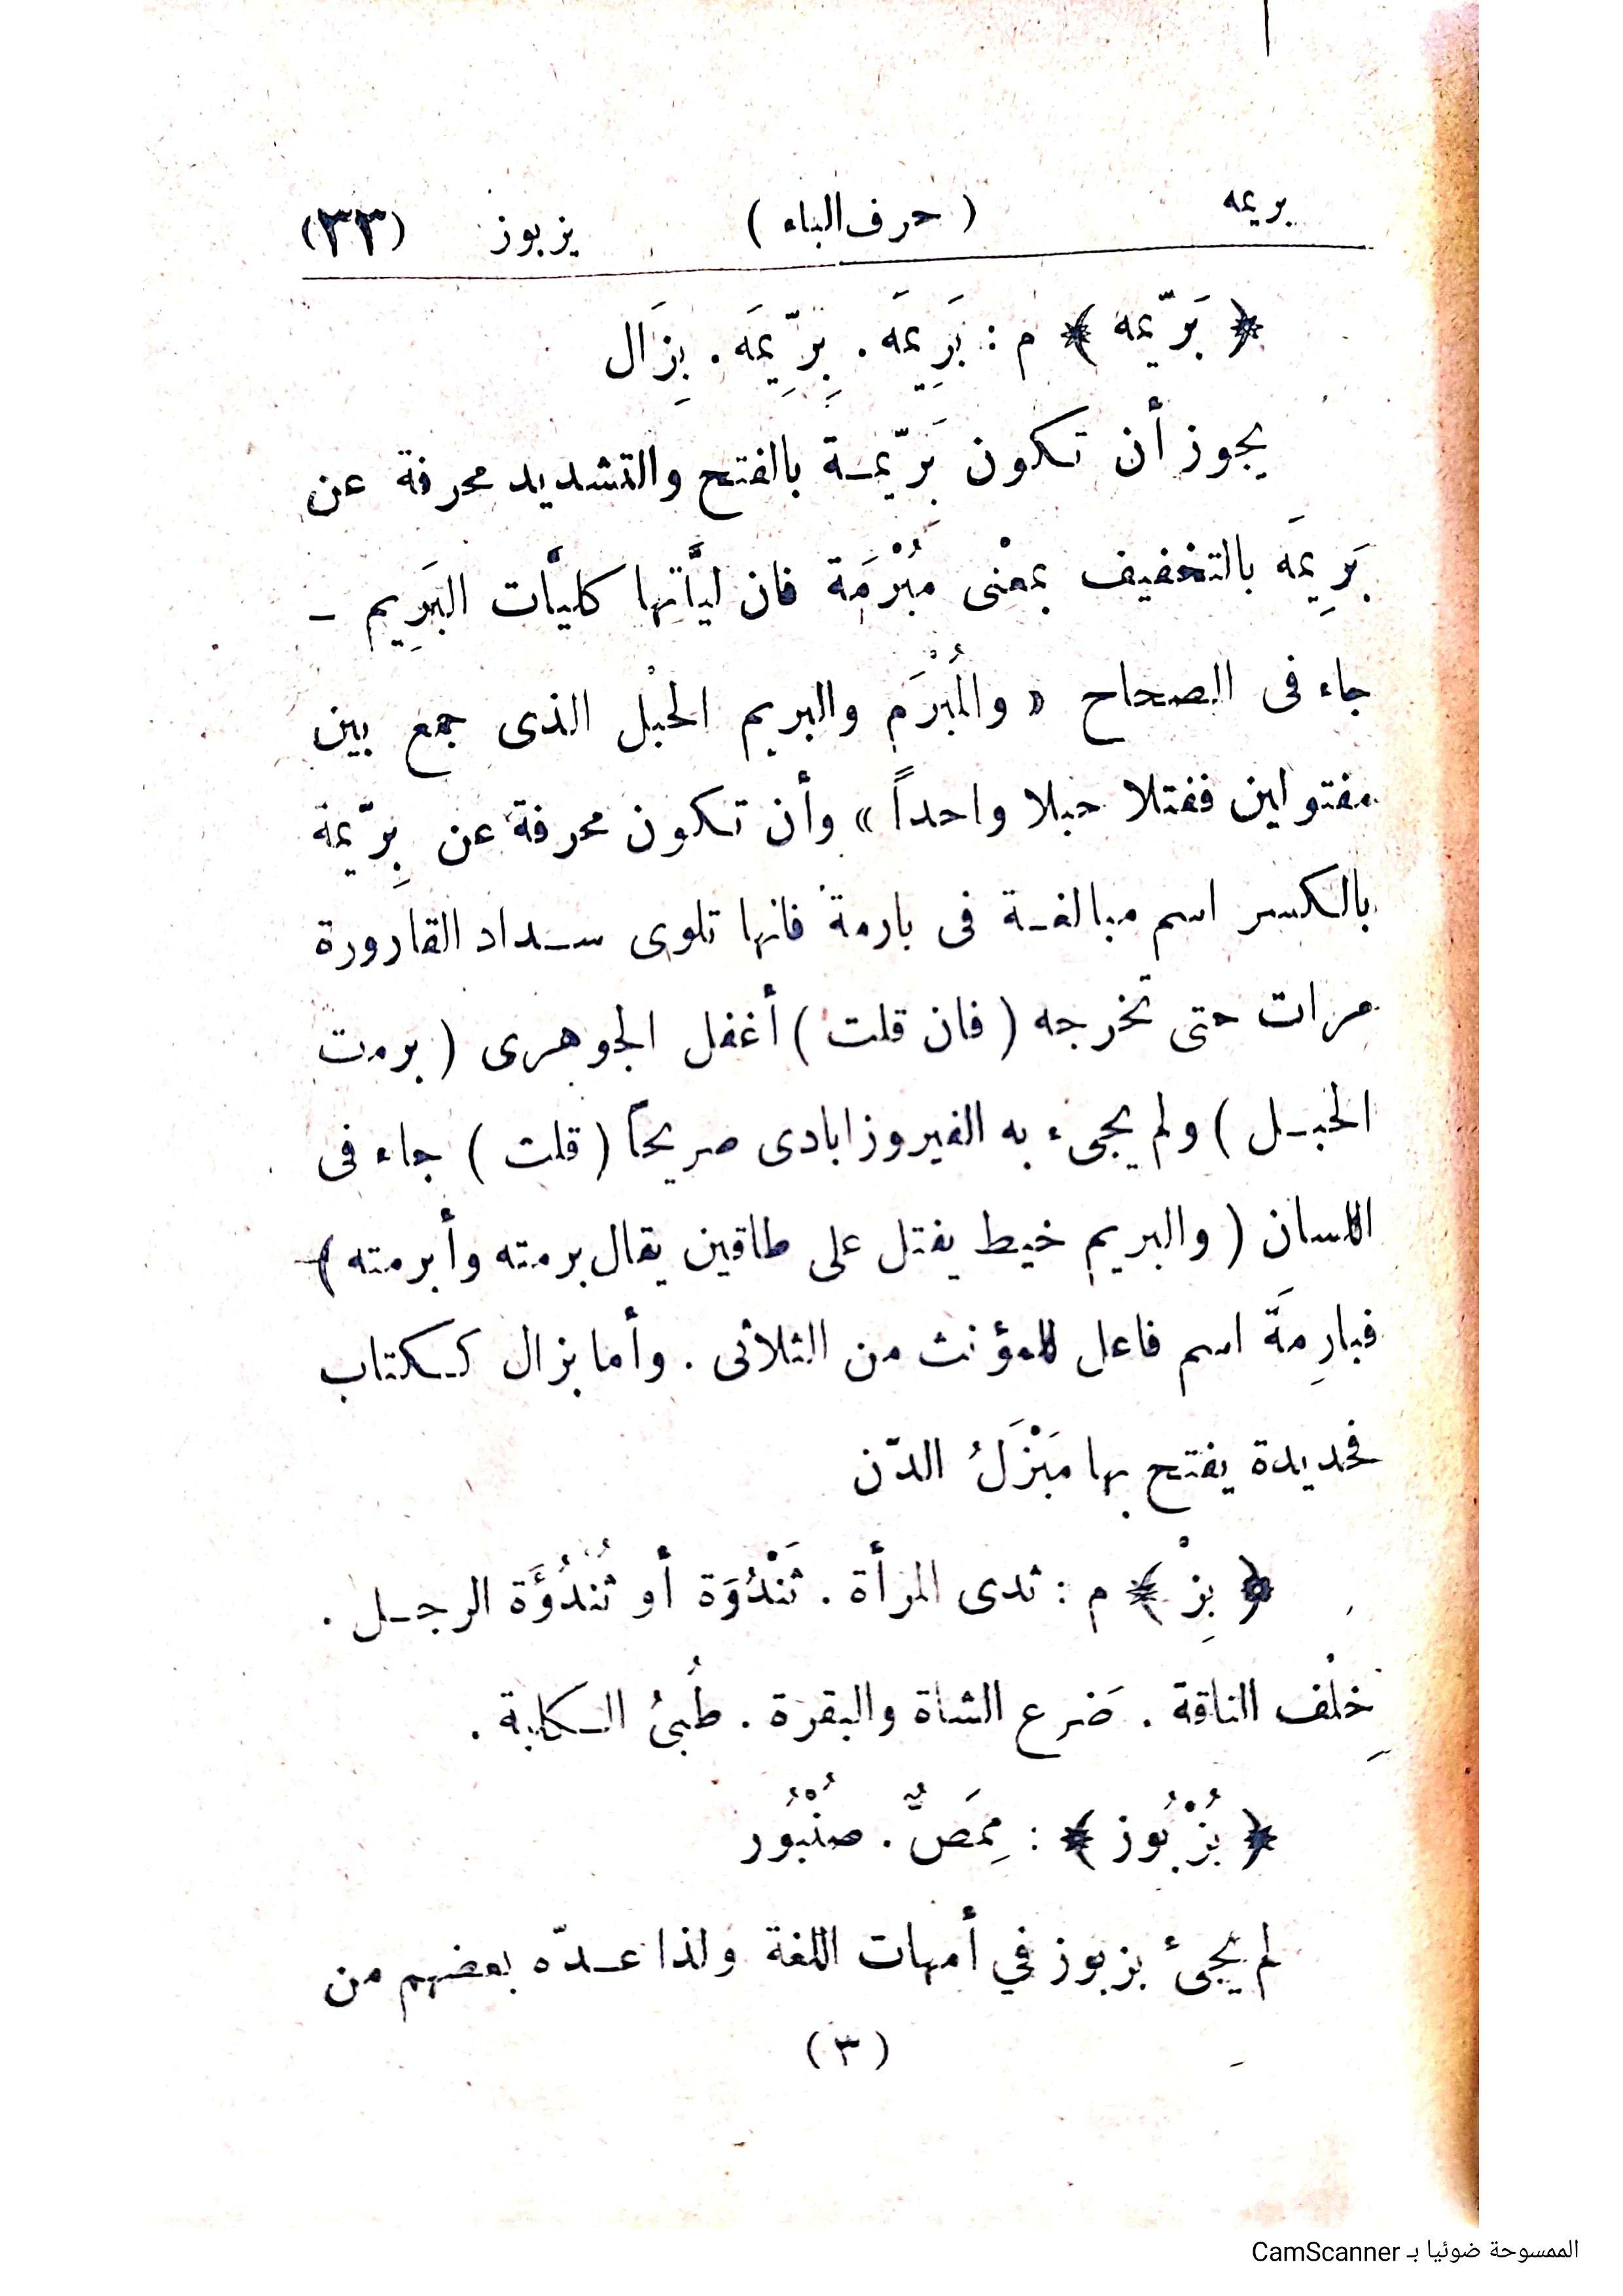 بريمه ( حرف الباء ) بزبوز (٣٣)
﴿ بَرّيمه ﴾ م : بَرِيمَه . بِرِّيمَه . بِزَال
يجوز أن تكون بَرّيمة بالفتح والتشديد محرفة عن
بَرِيمَه بالتخفيف بمعْنى مُبْرَمَة فان ليَّاتها كليَّات البَرِيم ـ
جاء فى الصحاح « والمُبْرَم والبريم الحبْل الذى جمع بين
مفتولين ففتلا حبلا واحداً » وأن تكون محرفة عن بِرّيمة
بالكسر اسم مبالغة فى بارمة فانها تلوى سداد القارورة
مرات حتى تخرجه ( فان قلت ) أغفل الجوهرى ( برمت
الحبل ) ولم يجىء به الفيروزابادى صريحاً ( قلت ) جاء فى
اللسان ( والبريم خيط يفتل على طاقين يقال برمته وأبرمته )
فبارِمَة اسم فاعل للمؤنث من الثلاثى . وأما بزال ككتاب
فحديدة يفتح بها مَبْزَلُ الدّن
﴿ بِزْ ﴾ م : ثدى المرأة . ثَنْدُوَة أو ثُنْدُؤَة الرجل .
خِلْف الناقة . ضَرع الشاة والبقرة . طُبىُ الكلبة .
﴿ بُزْبُوز ﴾ : مِمَصٌّ . صُنْبُور
لم يجئ بزبوز في أمهات اللغة ولذا عدّه بعضهم من
( ٣ )
الممسوحة ضوئيا بـ CamScanner